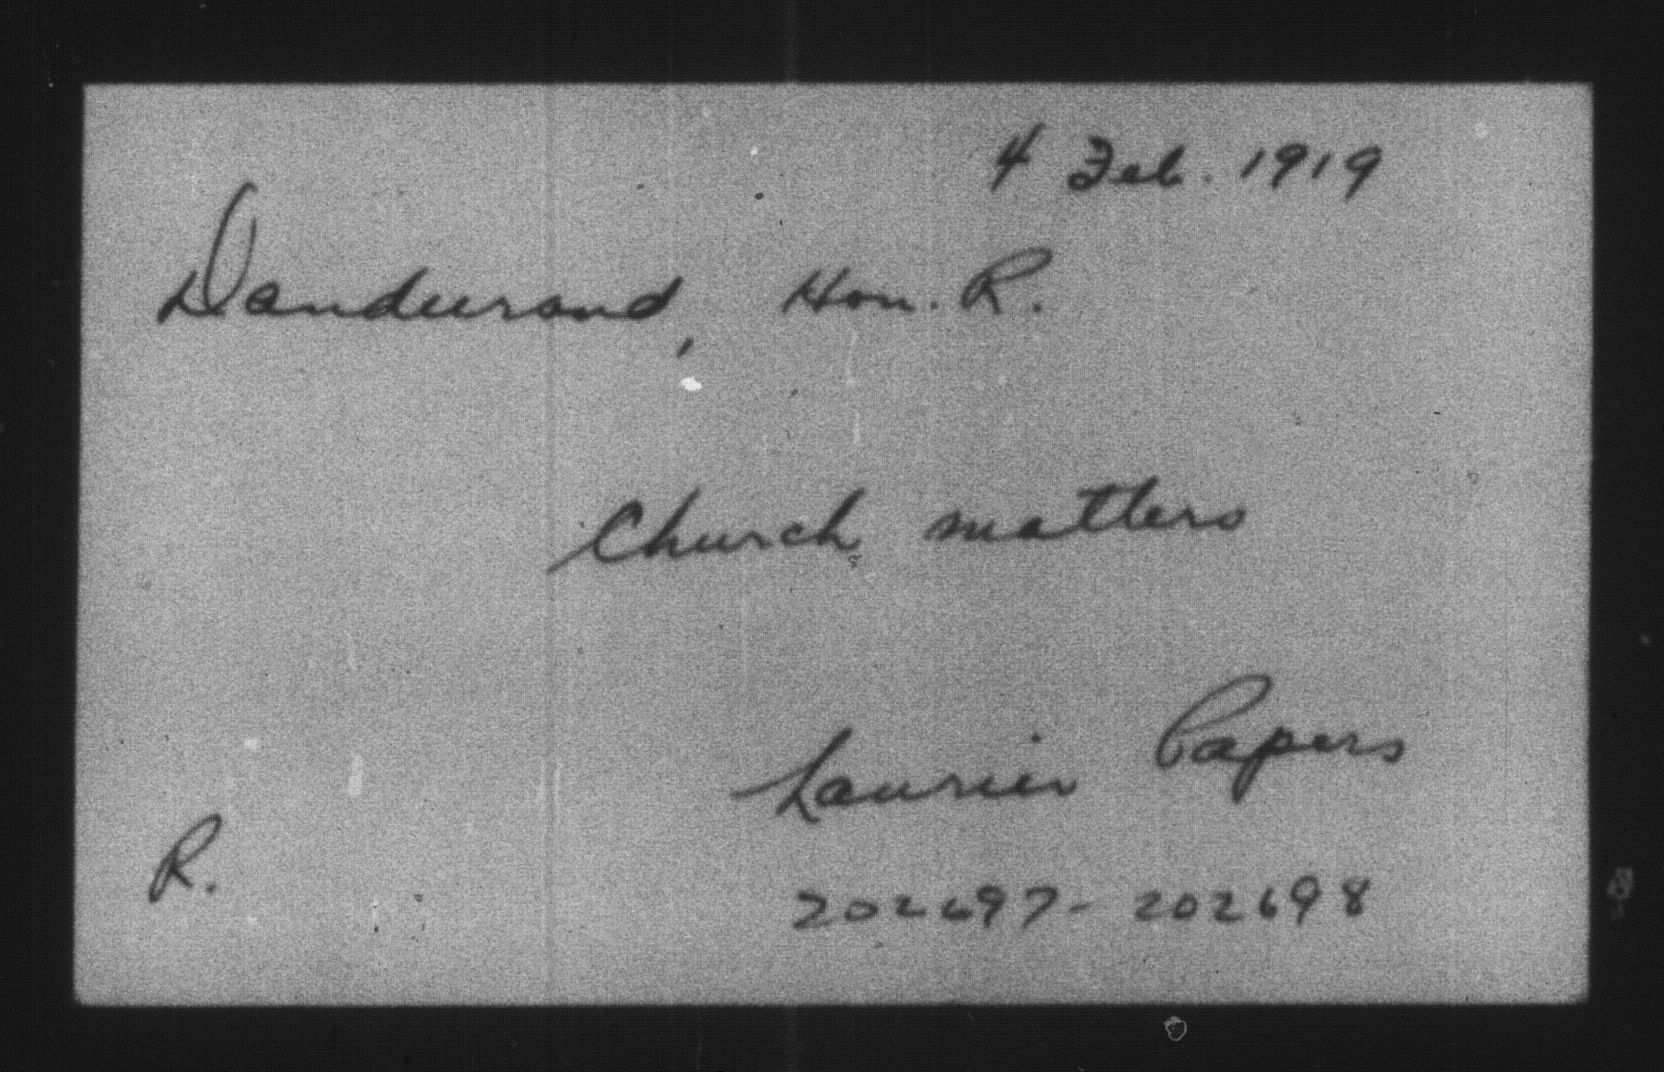 4 Feb. 1919
Dandurand, Hon. R.
Church matters
Laurier Papers
R.
202697-202698